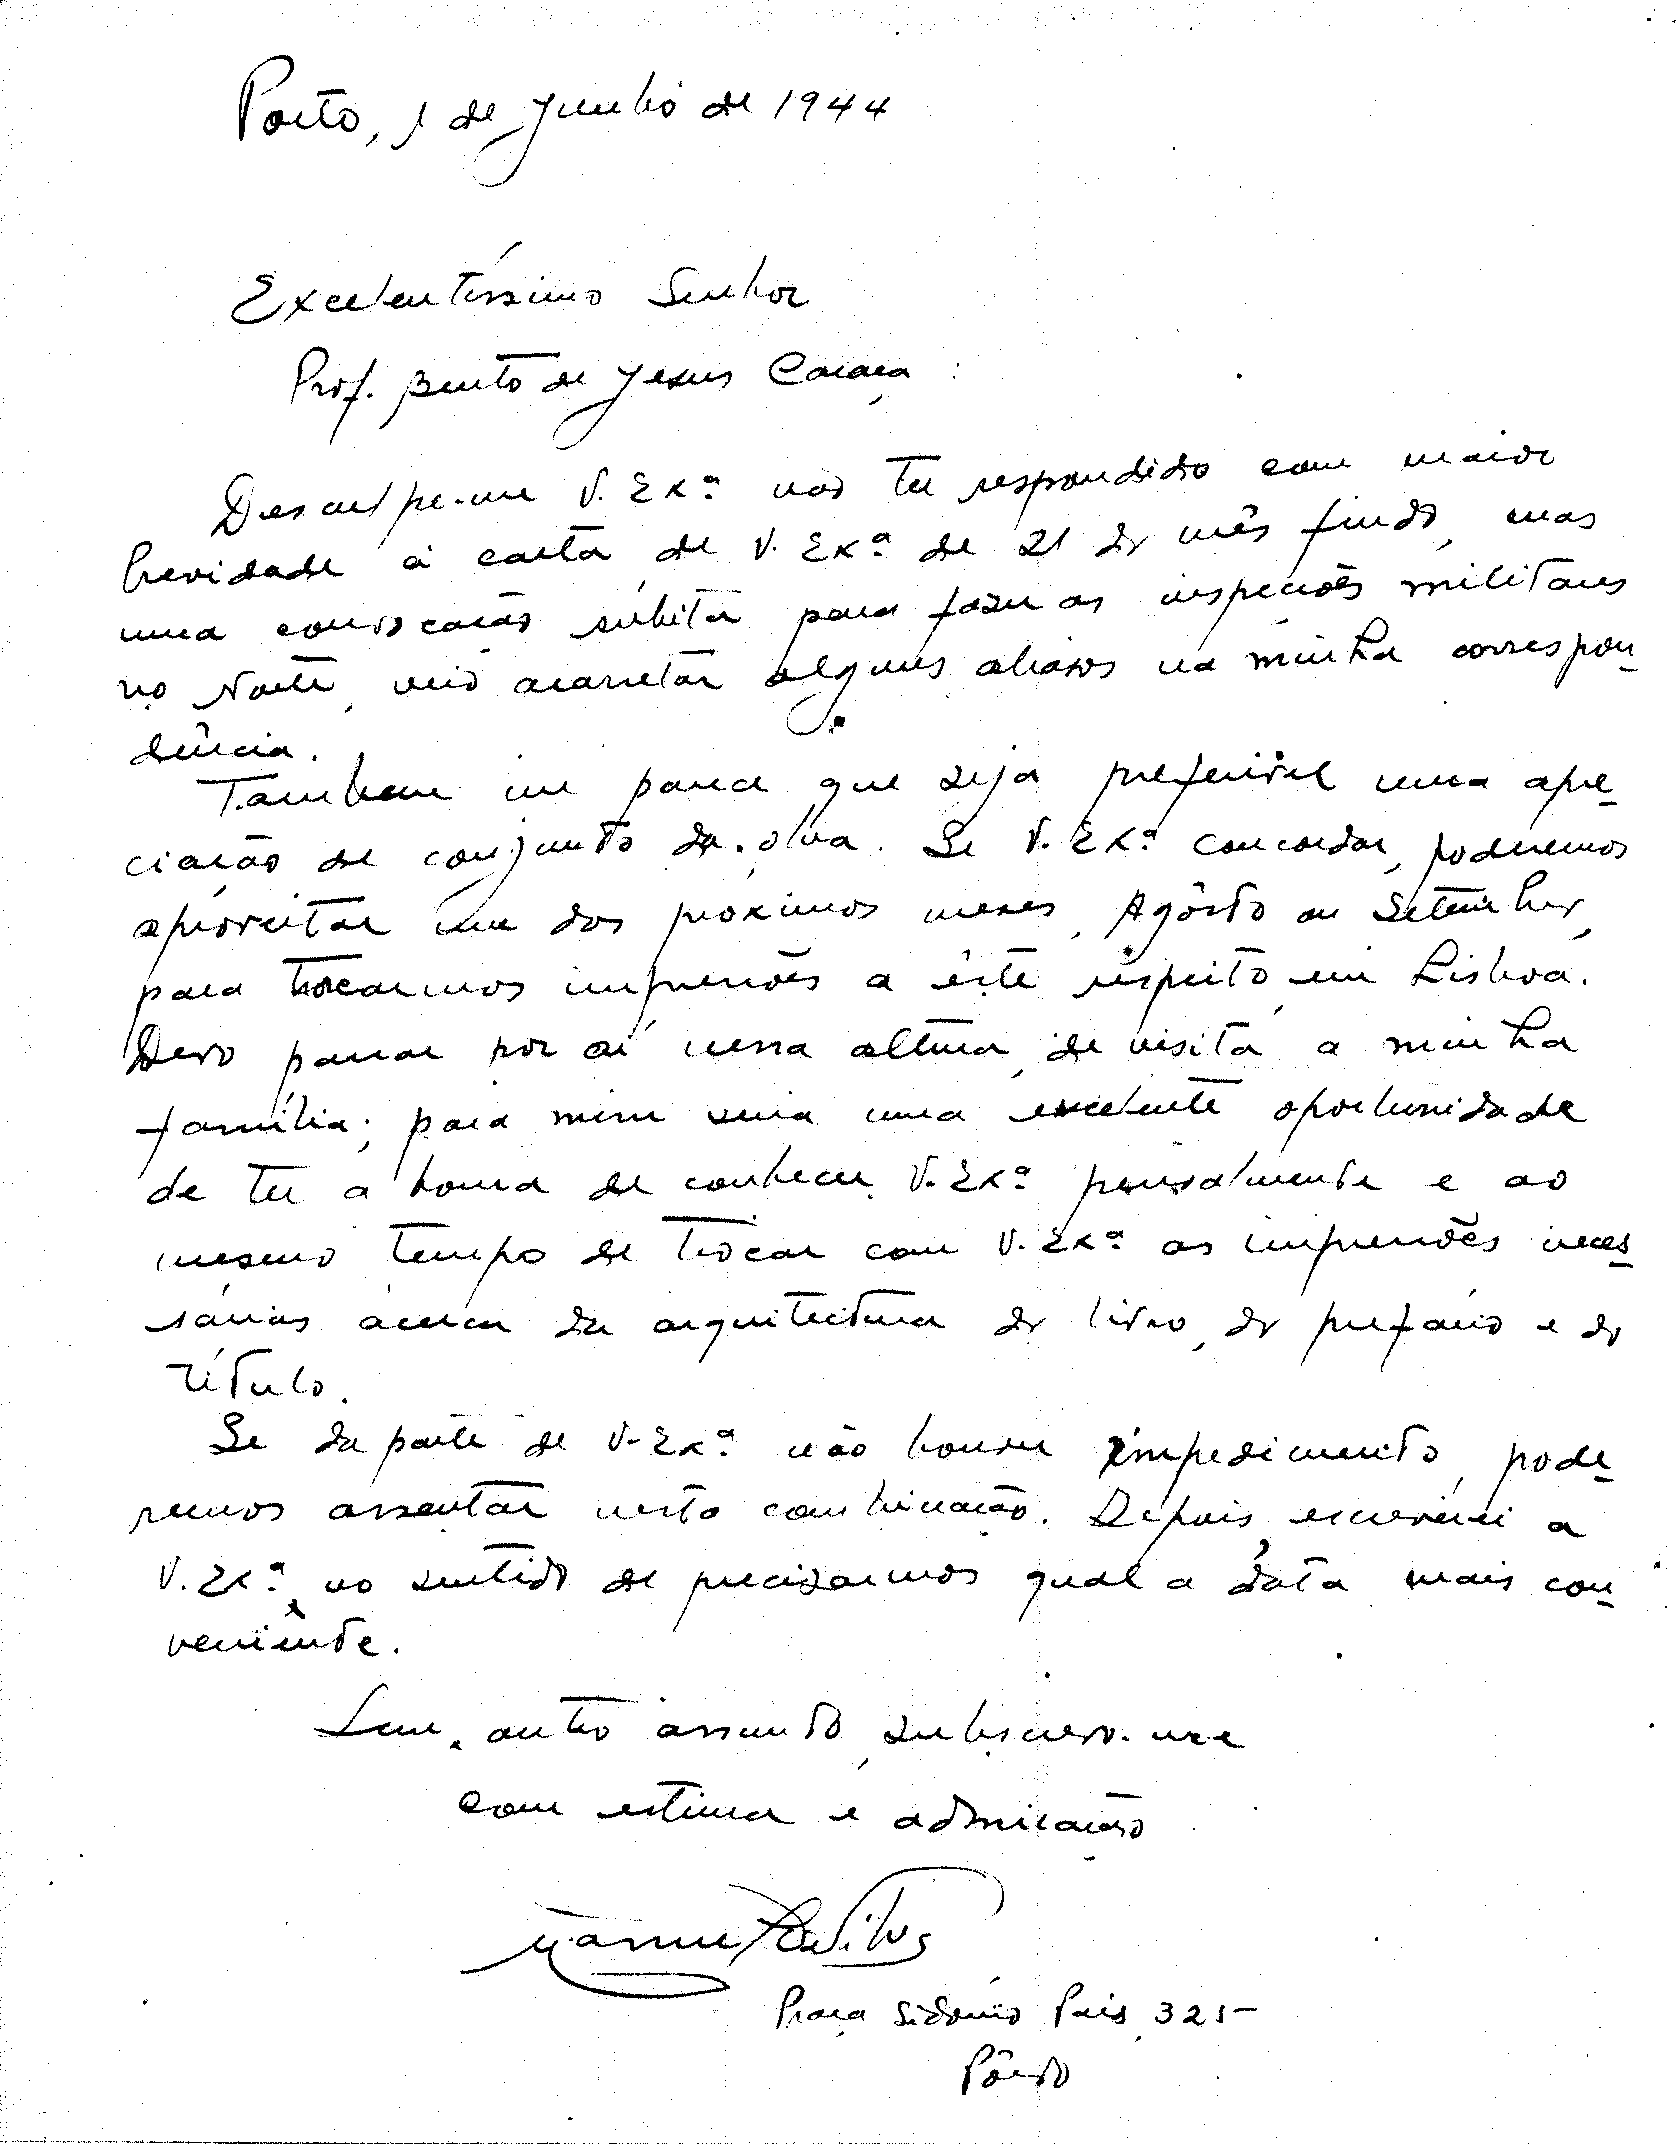 Porto, 1 de Junho de 1944
Excelentíssimo Senhor
Prof. Bento de Jesus Caraça :
Desculpe-me V. Exª não ter respondido com maior
brevidade à carta de V. Exª de 21 do mês findo, mas
uma convocação súbita para fazer as inspecções militares
no Norte, veio acarretar alguns atrasos na minha correspon-
dência.
Tambem me parece que seja preferivel uma apre-
ciação de conjunto da obra. Se V. Exª concordar, poderemos
aproveitar um dos próximos meses, Agôsto ou Setembro,
para trocarmos impressões a êste respeito em Lisboa.
Devo passar por aí nessa altura, de visita a minha
família; para mim seria uma excelente oportunidade
de ter a honra de conhecer V. Exª pessoalmente e ao
mesmo tempo de trocar com V. Exª as impressões neces-
sárias àcerca da arquitectura do livro, do prefácio e do
título.
Se da parte de V. Exª não houver impedimento, pode-
remos assentar nesta combinação. Depois escreverei a
V. Exª, no sentido de precisarmos qual a data mais con-
veniente.
Sem outro assunto, subscrevo-me
com estima e admiração
Praça Sidónio Pais, 325
Pôrto